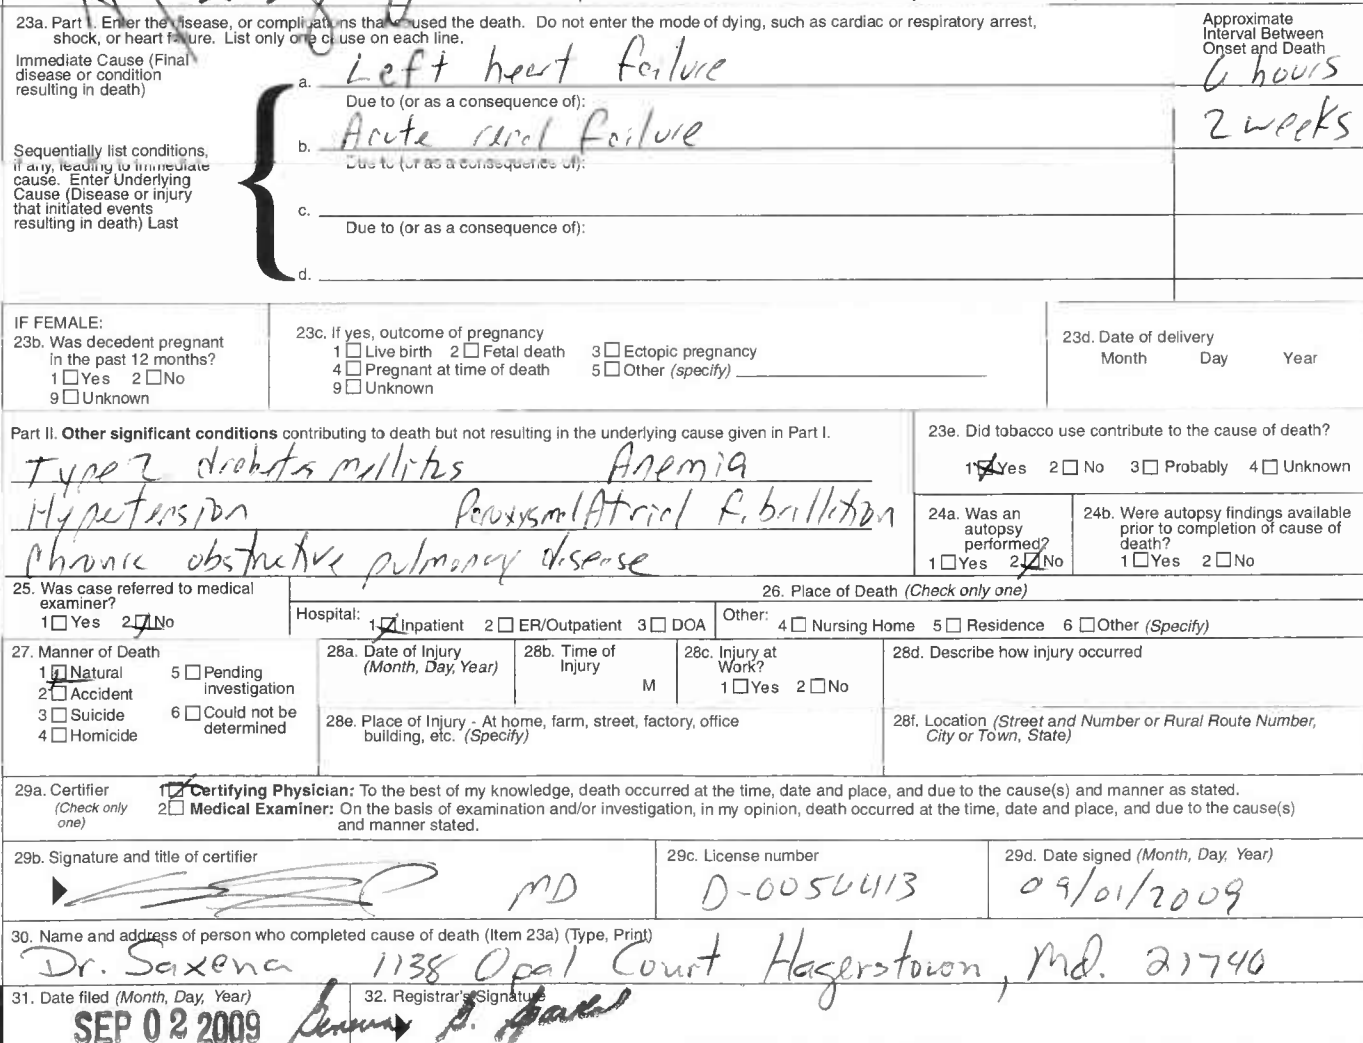 23a. Part I. Enter the disease, or complications that caused the death. Do not enter the mode of dying, such as cardiac or respiratory arrest,
shock, or heart failure. List only one cause on each line.
Approximate
Interval Between
Onset and Death
Immediate Cause (Final
disease or condition
resulting in death)
a. Left heart failure
6 hours
Due to (or as a consequence of):
b. Acute renal failure
2 weeks
Sequentially list conditions,
if any, leading to immediate
cause. Enter Underlying
Cause (Disease or injury
that initiated events
resulting in death) Last
Due to (or as a consequence of):
c.
Due to (or as a consequence of):
d.
IF FEMALE:
23b. Was decedent pregnant
in the past 12 months?
1 ☐ Yes 2 ☐ No
9 ☐ Unknown
23c. If yes, outcome of pregnancy
1 ☐ Live birth 2 ☐ Fetal death 3 ☐ Ectopic pregnancy
4 ☐ Pregnant at time of death 5 ☐ Other (specify)
9 ☐ Unknown
23d. Date of delivery
Month Day Year
Part II. Other significant conditions contributing to death but not resulting in the underlying cause given in Part I.
Type 2 diabetes mellitus Anemia
Hypertension Paroxysmal Atrial fibrillation
Chronic obstructive pulmonary disease
23e. Did tobacco use contribute to the cause of death?
1 ☒ Yes 2 ☐ No 3 ☐ Probably 4 ☐ Unknown
24a. Was an
autopsy
performed?
1 ☐ Yes 2 ☒ No
24b. Were autopsy findings available
prior to completion of cause of
death?
1 ☐ Yes 2 ☐ No
25. Was case referred to medical
examiner?
1 ☐ Yes 2 ☒ No
26. Place of Death (Check only one)
Hospital: 1 ☒ Inpatient 2 ☐ ER/Outpatient 3 ☐ DOA
Other: 4 ☐ Nursing Home 5 ☐ Residence 6 ☐ Other (Specify)
27. Manner of Death
1 ☒ Natural
2 ☐ Accident
3 ☐ Suicide
4 ☐ Homicide
5 ☐ Pending
investigation
6 ☐ Could not be
determined
28a. Date of Injury
(Month, Day, Year)
28b. Time of
Injury
M
28c. Injury at
Work?
1 ☐ Yes 2 ☐ No
28d. Describe how injury occurred
28e. Place of Injury - At home, farm, street, factory, office
building, etc. (Specify)
28f. Location (Street and Number or Rural Route Number,
City or Town, State)
29a. Certifier
(Check only
one)
1 ☒ Certifying Physician: To the best of my knowledge, death occurred at the time, date and place, and due to the cause(s) and manner as stated.
2 ☐ Medical Examiner: On the basis of examination and/or investigation, in my opinion, death occurred at the time, date and place, and due to the cause(s)
and manner stated.
29b. Signature and title of certifier
MD
29c. License number
29d. Date signed (Month, Day, Year)
09/01/2009
30. Name and address of person who completed cause of death (Item 23a) (Type, Print)
Dr. Saxena 1138 Opal Court Hagerstown, Md. 21740
31. Date filed (Month, Day, Year)
SEP 02 2009
32. Registrar's Signature